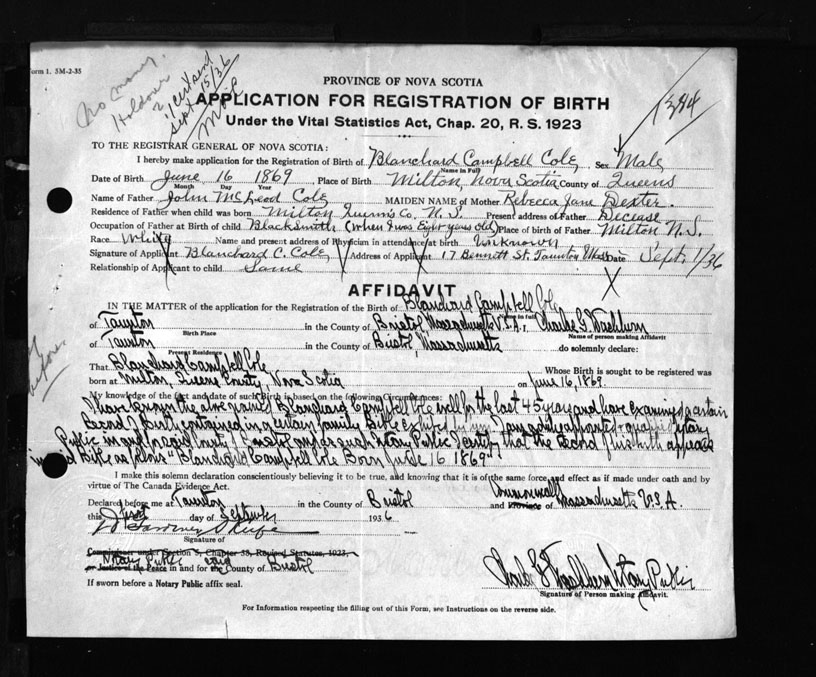 Form 1. 5M-2-35
No money
Holdover
2 certs send
Sept 15/36
1384
PROVINCE OF NOVA SCOTIA
APPLICATION FOR REGISTRATION OF BIRTH
Under the Vital Statistics Act, Chap. 20, R. S. 1923
TO THE REGISTRAR GENERAL OF NOVA SCOTIA:
I hereby make application for the Registration of Birth of Blanchard Campbell Cole, Sex Male
Name in Full
Date of Birth June 16 1869 Place of Birth Milton Nova Scotia County of Queens
Month Day Year
Name of Father John McLeod Cole MAIDEN NAME of Mother Rebecca Jane Dexter.
Residence of Father when child was born Milton Queens Co. N. S. Present address of Father Decease
Occupation of Father at Birth of child Blacksmith (when I was Eight years old) Place of birth of Father Milton N.S.
Race White Name and present address of Physician in attendance at birth Unknown
Signature of Applicant Blanchard C. Cole, Address of Applicant 17 Bennett St. Taunton Mass Date Sept. 1/36
Relationship of Applicant to child Same
AFFIDAVIT
IN THE MATTER of the application for the Registration of the Birth of Blanchard Campbell Cole
Name in full
of Taunton in the County of Bristol Massachusetts U.S.A., Charles G. Washburn
Birth Place Name of person making Affidavit
of Taunton in the County of Bristol, Massachusetts do solemnly declare:
Present Residence
That Blanchard Campbell Cole Whose Birth is sought to be registered was
born at Milton, Queens County, Nova Scotia on June 16, 1869.
My knowledge of the fact and date of such Birth is based on the following Circumstances:
I have known the above named Blanchard Campbell Cole well for the last 45 years and have examined a certain
record of Birth contained in a certain family Bible I am a duly appointed + qualified Notary
Public in and for said County of Bristol and as such Notary Public I certify that the record of his birth appears
in said Bible as follows "Blanchard Campbell Cole Born June 16 1869"
I make this solemn declaration conscientiously believing it to be true, and knowing that it is of the same force and effect as if made under oath and by
virtue of The Canada Evidence Act.
Declared before me at Taunton in the County of Bristol and Province of Commonwealth Massachusetts U.S.A.
this first day of September 1936
Signature of
Commissioner under Section 5, Chapter 38, Revised Statutes, 1923,
or Justice of the Peace in and for the County of Bristol
Notary Public said
If sworn before a Notary Public affix seal.
Charles G Washburn Notary Public
Signature of Person making Affidavit.
For Information respecting the filling out of this Form, see Instructions on the reverse side.